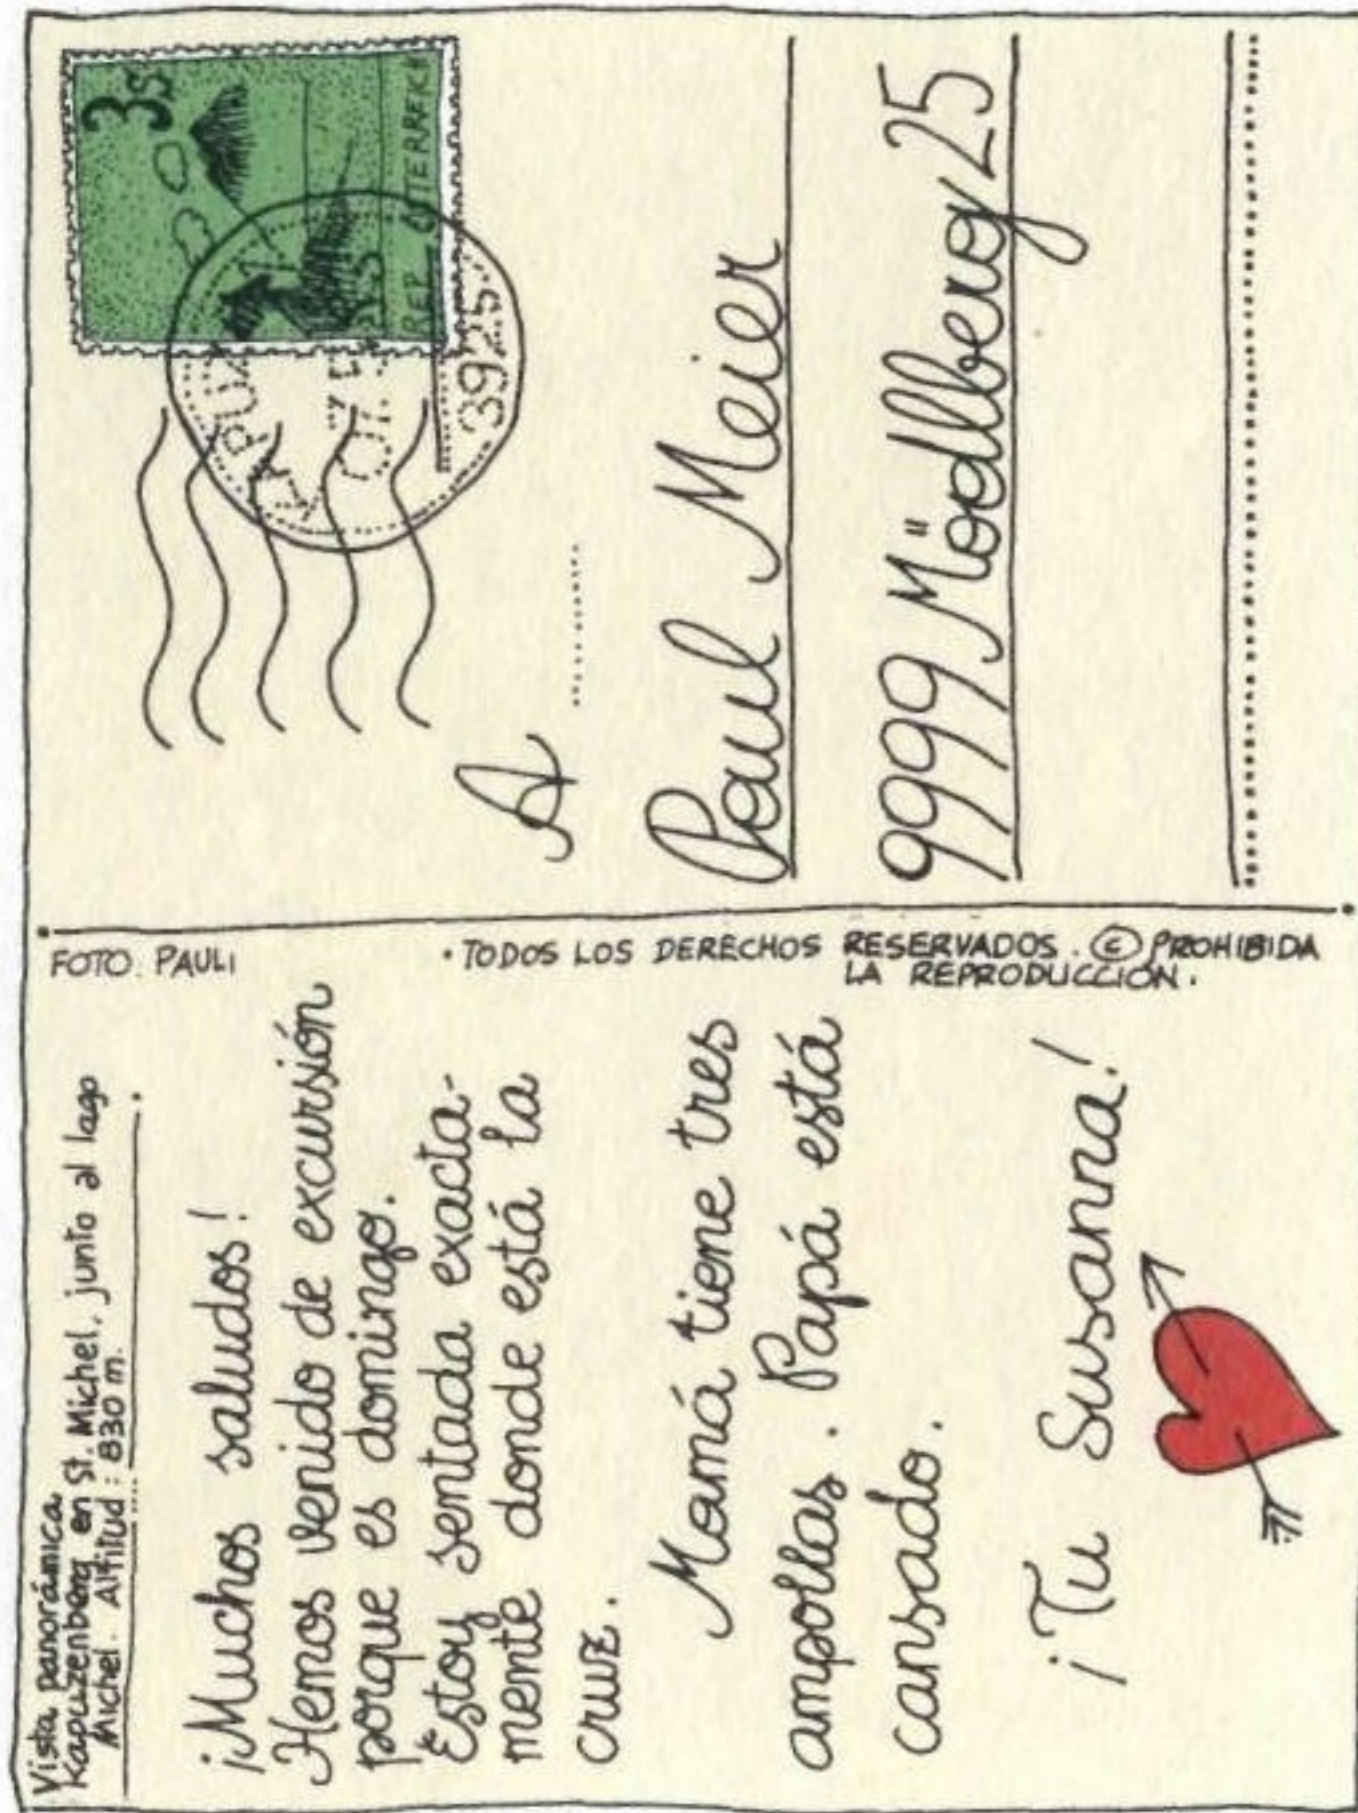 Vista panorámica
Kapuzenberg en St. Michel, junto al lago
Michel. Altitud: 830 m.
¡Muchos saludos!
Hemos venido de excursión
porque es domingo.
Estoy sentada exacta-
mente donde está la
cruz.
Mamá tiene tres
ampollas. Papá está
cansado.
¡Tu Susanna!
FOTO. PAULI
• TODOS LOS DERECHOS RESERVADOS. © PROHIBIDA
LA REPRODUCCIÓN.
3s
REP. ÖSTERREICH
3925
A
Paul Meier
9999 Mödlberg 25